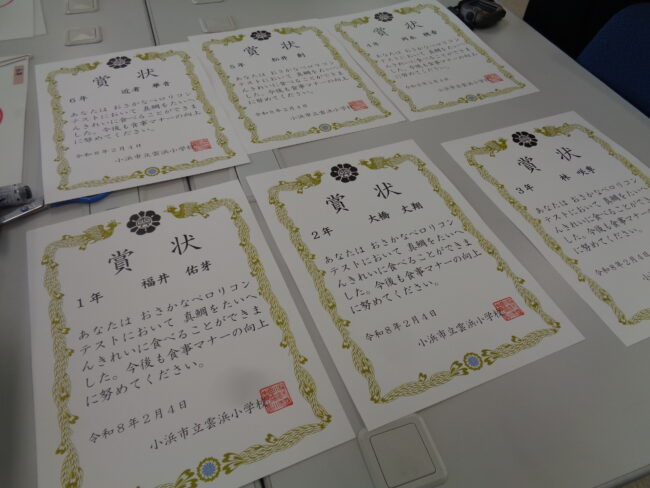 賞状
6年
あなたは おさかなペロリコン
テストにおいて 真鯛をたいへ
んきれいに食べることができま
した。今後も食事マナーの向上
に努めてください。
令和8年2月4日
小浜市立雲浜小学校
賞状
5年 松井 創
あなたは おさかなペロリコン
テストにおいて 真鯛をたいへ
んきれいに食べることができま
した。今後も食事マナーの向上
に努めてください。
令和8年2月4日
小浜市立雲浜小学校
賞状
4年
あなたは おさかなペロリコン
テストにおいて 真鯛をたいへ
んきれいに食べることができま
した。今後も食事マナーの向上
に努めてください。
令和8年2月4日
小浜市立雲浜小学校
賞状
1年 福井 佑芽
あなたは おさかなペロリコン
テストにおいて 真鯛をたいへ
んきれいに食べることができま
した。今後も食事マナーの向上
に努めてください。
令和8年2月4日
小浜市立雲浜小学校
賞状
2年 大橋 丈翔
あなたは おさかなペロリコン
テストにおいて 真鯛をたいへ
んきれいに食べることができま
した。今後も食事マナーの向上
に努めてください。
令和8年2月4日
小浜市立雲浜小学校
賞状
3年 林
あなたは おさかなペロリ
テストにおいて 真鯛を
んきれいに食べること
した。今後も食事マ
に努めてください。
令和8年2月4日
小浜市